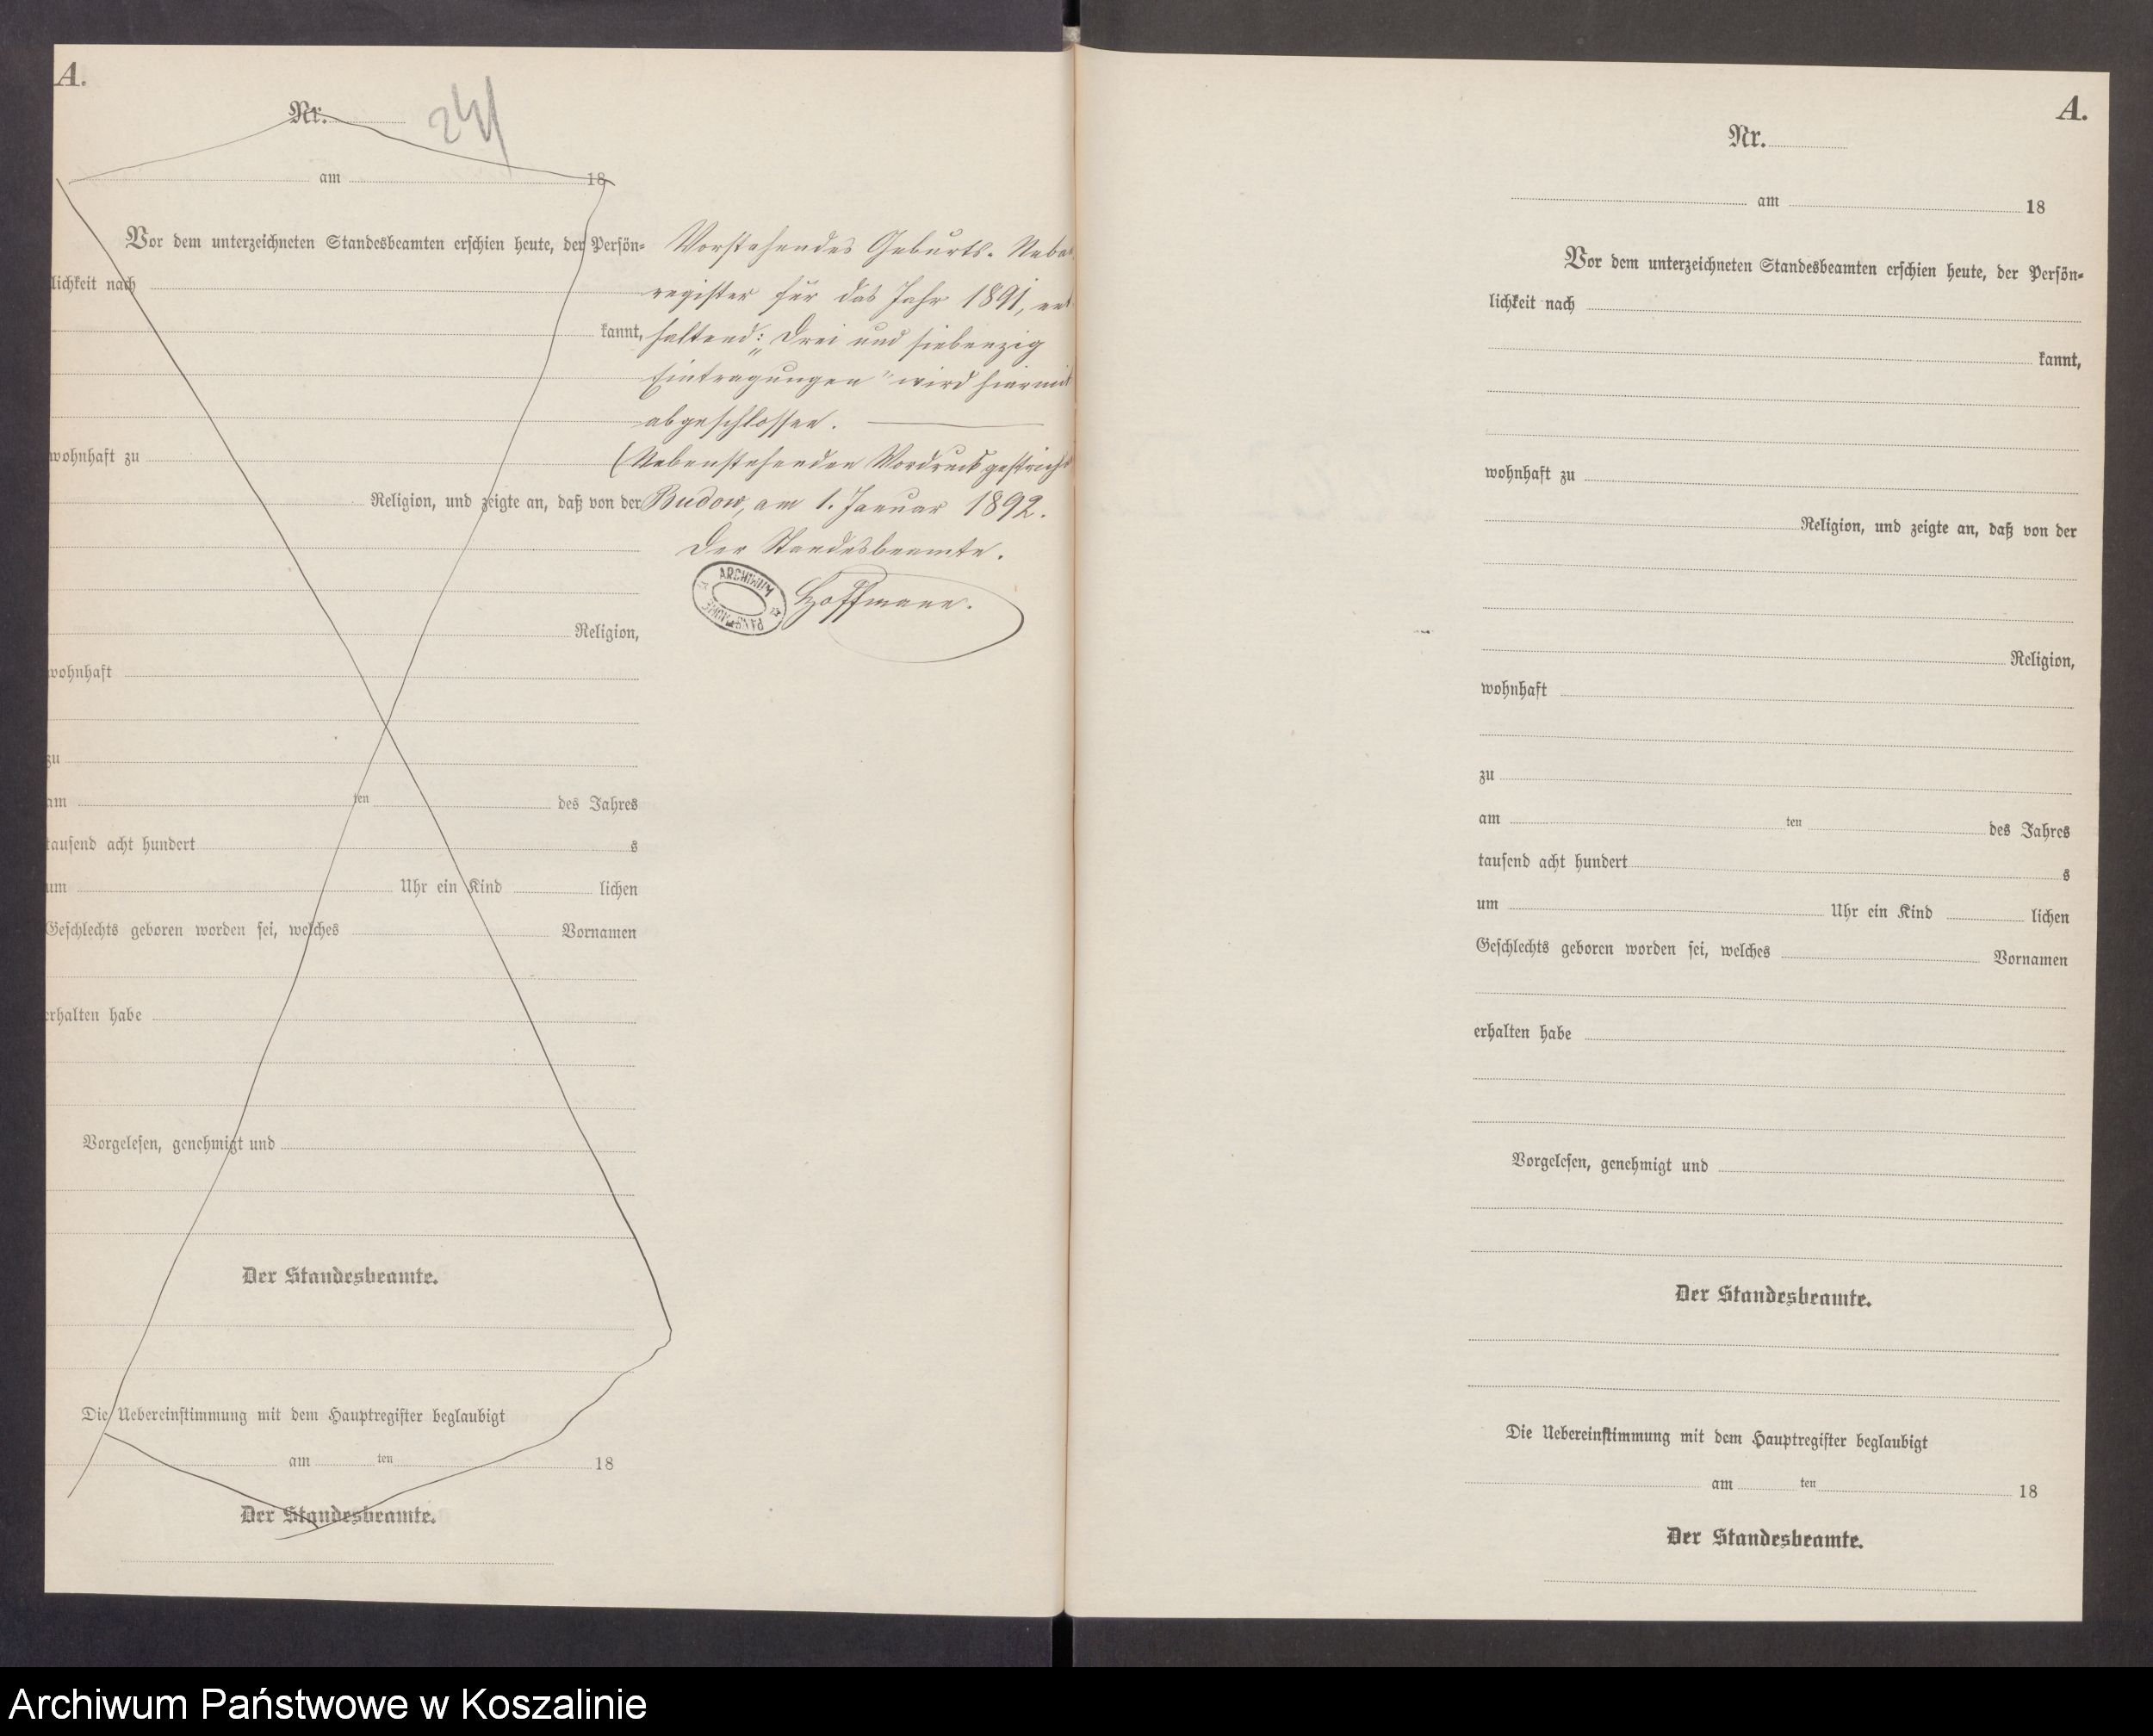 A.
Nr.
241
am 18
Vor dem unterzeichneten Standesbeamten erschien heute, der Persön=
lichkeit nach
kannt,
wohnhaft zu
Religion, und zeigte an, daß von der
Religion,
wohnhaft
zu
am ten des Jahres
tausend acht hundert s
um Uhr ein Kind lichen
Geschlechts geboren worden sei, welches Vornamen
erhalten habe
Vorgelesen, genehmigt und
Der Standesbeamte.
Die Uebereinstimmung mit dem Hauptregister beglaubigt
am ten 18
Der Standesbeamte.
Vorstehendes Geburts-Neben
register für das Jahr 1891, ent
haltend: „Drei und siebenzig
Eintragungen" wird hiermit
abgeschlossen.
(Nebenstehenden Vordruck gestrich
Budow, am 1. Januar 1892.
Der Standesbeamte.
Hoffmann.
ARCHIWUM
PAŃSTWOWE
A.
Nr.
am 18
Vor dem unterzeichneten Standesbeamten erschien heute, der Persön=
lichkeit nach
kannt,
wohnhaft zu
Religion, und zeigte an, daß von der
Religion,
wohnhaft
zu
am ten des Jahres
tausend acht hundert s
um Uhr ein Kind lichen
Geschlechts geboren worden sei, welches Vornamen
erhalten habe
Vorgelesen, genehmigt und
Der Standesbeamte.
Die Uebereinstimmung mit dem Hauptregister beglaubigt
am ten 18
Der Standesbeamte.
Archiwum Państwowe w Koszalinie